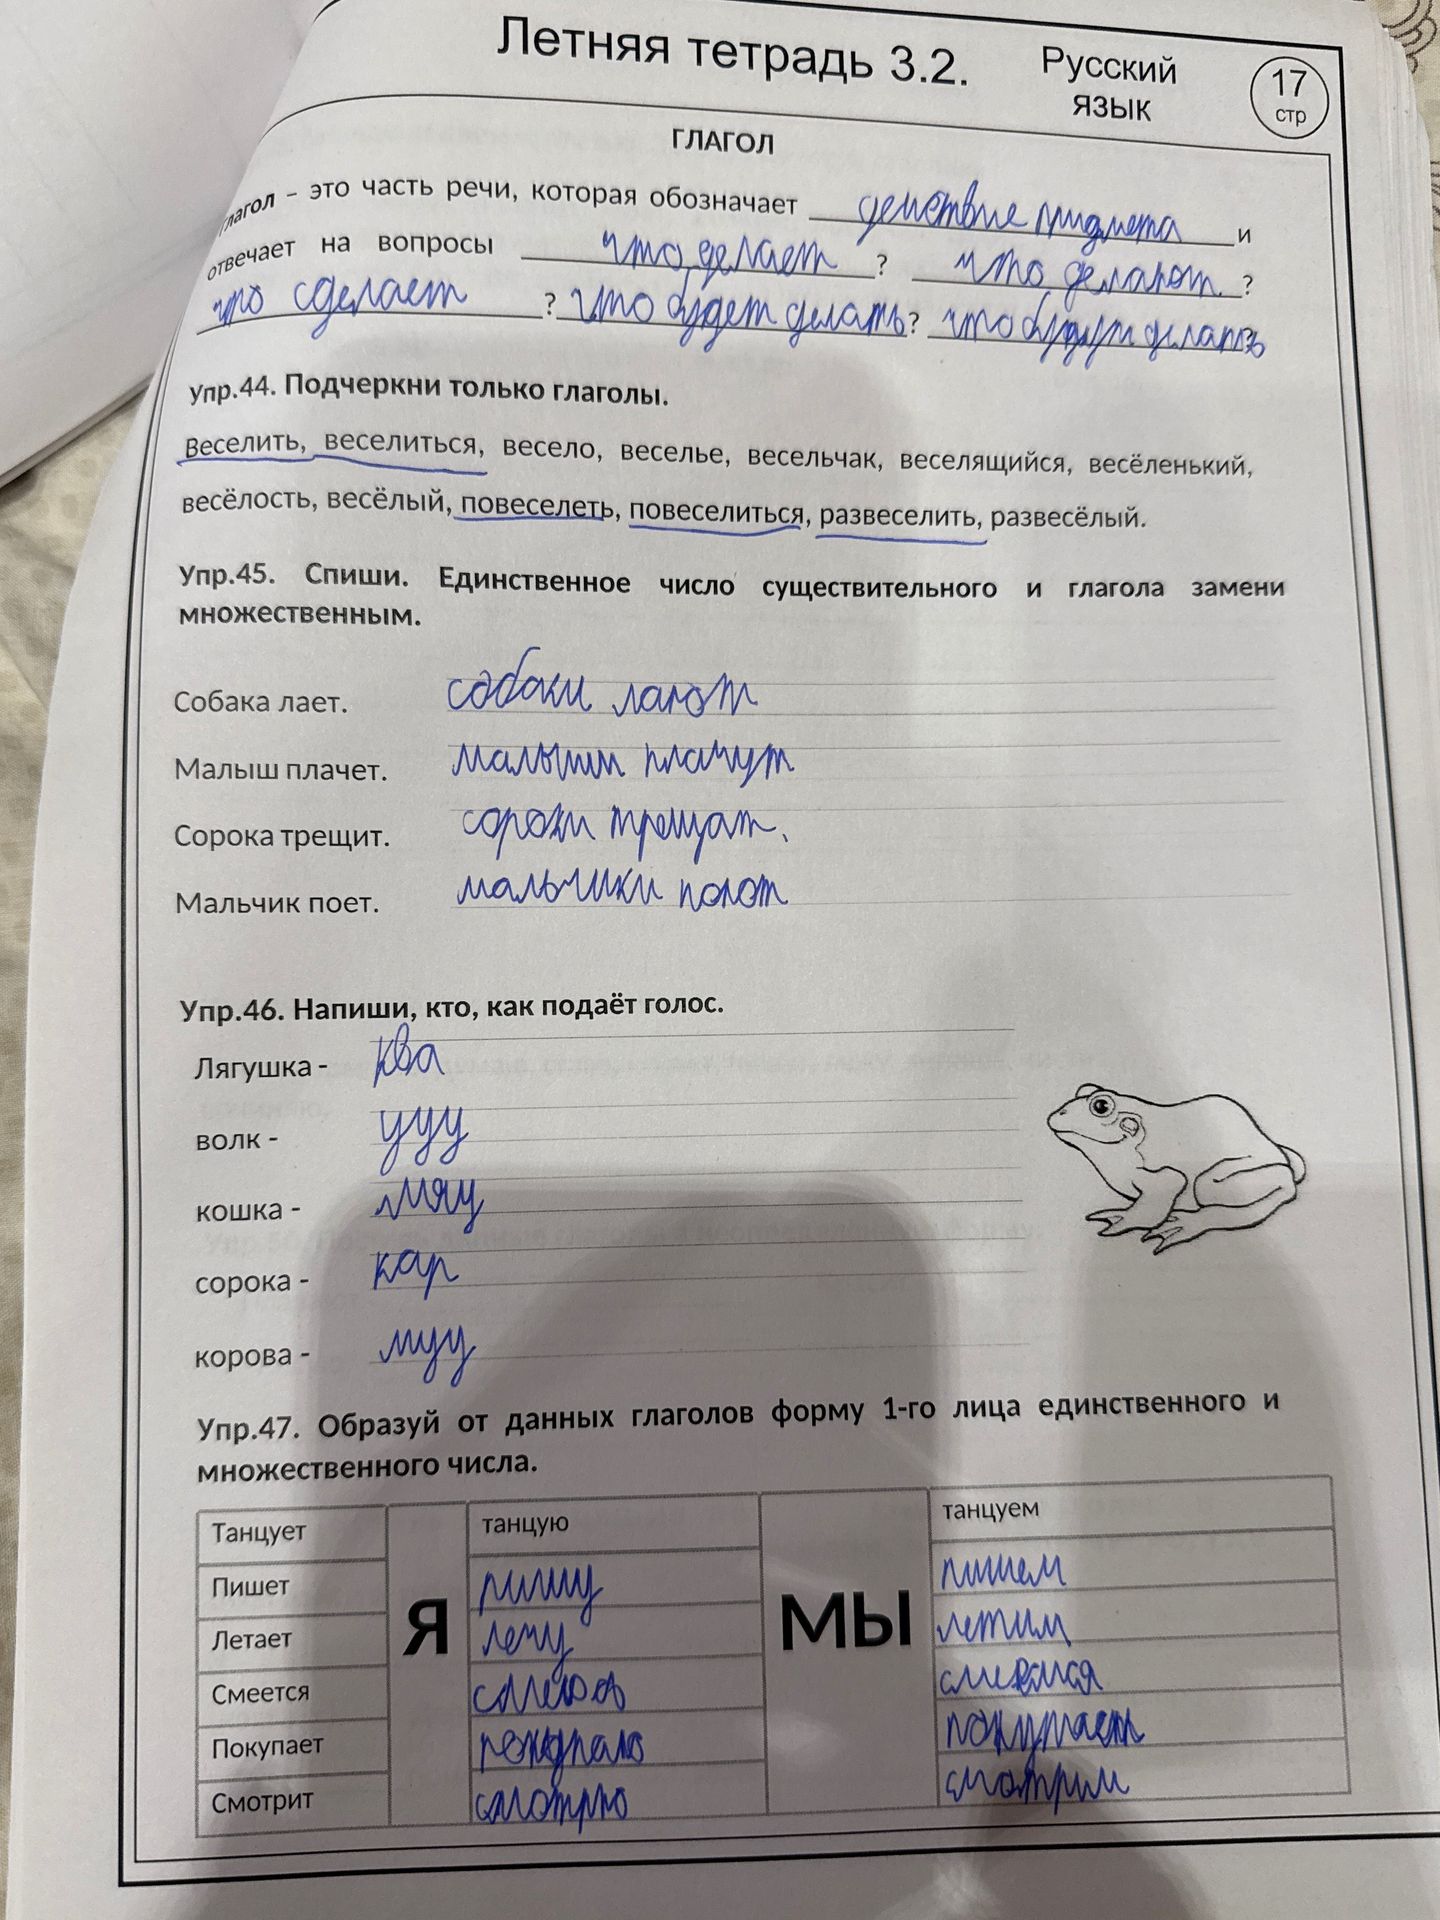 Летняя тетрадь 3.2. Русский язык 17 стр
ГЛАГОЛ
Глагол – это часть речи, которая обозначает действие придмета и
отвечает на вопросы что делает ? что делают ?
что сделает ? что будет делать ? что будут делать ?
Упр.44. Подчеркни только глаголы.
Веселить, веселиться, весело, веселье, весельчак, веселящийся, весёленький,
весёлость, весёлый, повеселеть, повеселиться, развеселить, развесёлый.
Упр.45. Спиши. Единственное число существительного и глагола замени
множественным.
Собака лает. собаки лают
Малыш плачет. малыши плачут
Сорока трещит. сороки трещат.
Мальчик поет. мальчики поют
Упр.46. Напиши, кто, как подаёт голос.
Лягушка - ква
волк - ууу
кошка - мяу
сорока - кар
корова - муу
Упр.47. Образуй от данных глаголов форму 1-го лица единственного и
множественного числа.
Танцует Я танцую МЫ танцуем
Пишет пишу пишем
Летает лечу летим
Смеется смеюсь смеемся
Покупает покупаю
Смотрит смотрю смотрим